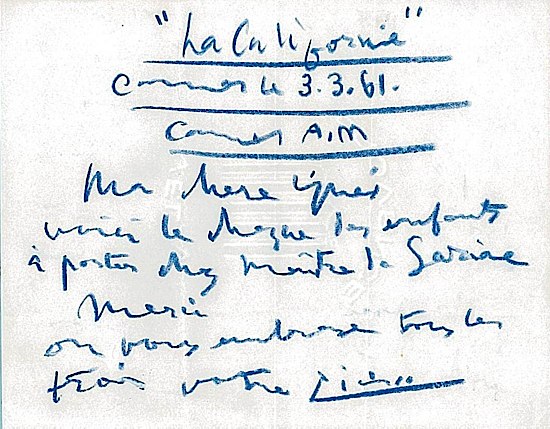 "La Californie"
Cannes le 3.3.61.
Cannes A.M
Ma chere Ignés
voici le cheque des enfants
à porter chez Maître de
Merci
on vous embrasse tous les
trois votre Picasso